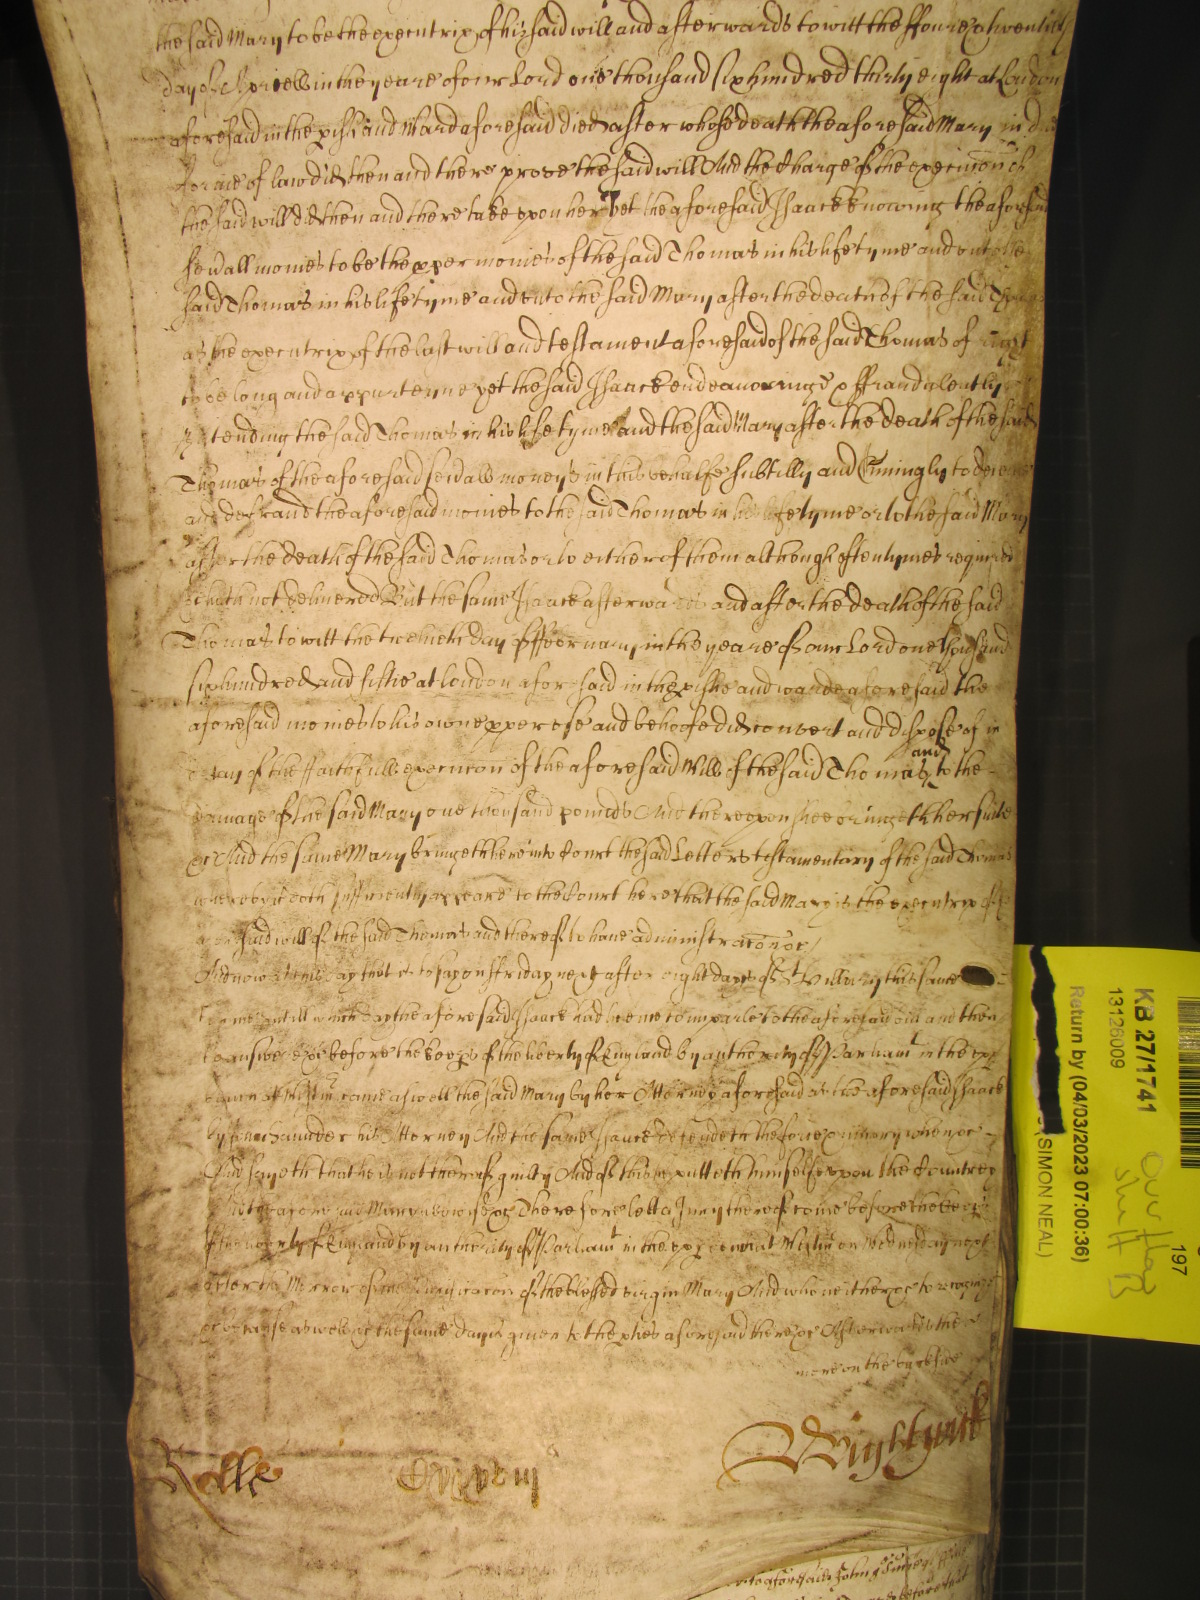 the said Mary to be the executrix of his said will and afterwards to witt the ffoure & twentith
day of Aprill in the yeare of our Lord one thousand six hundred thirty eight at London
aforesaid in the pish and Ward aforesaid died after whose death the aforesaid Mary in due
forme of law did then and there prove the said will And the Charge of the execucon of
the said will did then and there take upon her yet the aforesaid Isaack knowing the aforesaid
sevall monies to be the pper monies of the said Thomas in his life tyme and unto the
said Thomas in his life tyme and unto the said Mary after the death of the said Thomas
as the executrix of the last will and testament aforesaid of the said Thomas of right
to belong and appurteyne yet the said Isaack endeavouringe & ffraudulently
intending the said Thomas in his life tyme and the said Mary after the death of the said
Thomas of the aforesaid sevall moneys in this behalfe subtilly and Cuningly to deceive
and defraud the aforesaid monies to the said Thomas in his life tyme or to the said Mary
after the death of the said Thomas or to either of them although oftentymes required
hath not delivered But the same Isaack afterwards and after the death of the said
Thomas to witt the twelveth day of ffebruary in the yeare of our Lord one thousand
six hundred and fiftie at London aforesaid in the pishe and warde aforesaid the
aforesaid monies to his owne pper use and behoofe did convert and dispose of in
delay of the ffaithfull execucon of the aforesaid Will of the said Thomas and to the
damage of the said Mary one thousand pounds And thereupon shee bringeth her suite
&c And the same Mary bringeth here into Court the said Letters testamentary of the said Thomas
whereby it doth sufficiently appeare to the Court here that the said Mary is the executrix of the
aforesaid will of the said Thomas and thereof to have administracon &c /
And now at this day that is to say on ffriday next after eight dayes of St Hillary this same
Terme untill which day the aforesaid Isaack had licence to imparle to the aforesaid bill and then
to answere &c before the keeps of the liberty of England by authority of Parliamt in the upp
bench at Westmr came aswell the said Mary by her Atterney aforesaid as the aforesaid Isaack
by his Atterney And the same Isaack defendeth the force & iniury when &c
And sayeth that he is not thereof guilty And of this he putteth himselfe upon the Countrey
And the aforesaid Mary likewise &c Therefore lett a Jury thereof come before the keeps
of the liberty of England by authority of Parliamt in the upp bench at Westmr on Wednesday next
after the Morrow of the Purificacon of the blessed virgin Mary And who neither &c to recognize
&c because aswell &c the same day is given to the pties aforesaid there &c Afterwards the
more on the backside
Rolle
Wightwick
aforesaid John
KB 27/1741
13126009
Return by (04/03/2023 07:00:36)
(SIMON NEAL)
197